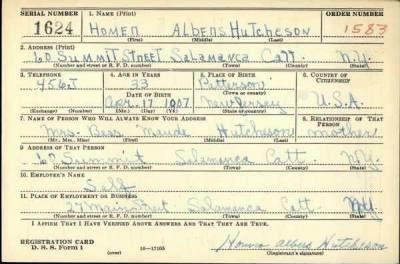 SERIAL NUMBER 1. NAME (Print) ORDER NUMBER
1624 HOMER ALBERS HUTCHESON 1583
(First) (Middle) (Last)
2. ADDRESS (Print)
60 SUMMIT STREET SALAMANCA CATT N.Y.
(Number and street or R. F. D. number) (Town) (County) (State)
3. TELEPHONE 4. AGE IN YEARS 5. PLACE OF BIRTH 6. COUNTRY OF CITIZENSHIP
456J 33 Patterson
(Town or county)
DATE OF BIRTH
APR. 17 1907 New Jersey U.S.A.
(Exchange) (Number) (Mo.) (Day) (Yr.) (State or country)
7. NAME OF PERSON WHO WILL ALWAYS KNOW YOUR ADDRESS 8. RELATIONSHIP OF THAT PERSON
Mrs. Bess Maude Hutcheson mother
(Mr., Mrs., Miss) (First) (Middle) (Last)
9. ADDRESS OF THAT PERSON
Summit Salamanca Catt. N.Y.
(Number and street or R. F. D. number) (Town) (County) (State)
10. EMPLOYER'S NAME
Self
11. PLACE OF EMPLOYMENT OR BUSINESS
Main Street Salamanca Catt. N.Y.
(Number and street or R. F. D. number) (Town) (County) (State)
I AFFIRM THAT I HAVE VERIFIED ABOVE ANSWERS AND THAT THEY ARE TRUE.
REGISTRATION CARD
D. S. S. Form 1 (over) 16—17105 Homer Albers Hutcheson
(Registrant's signature)